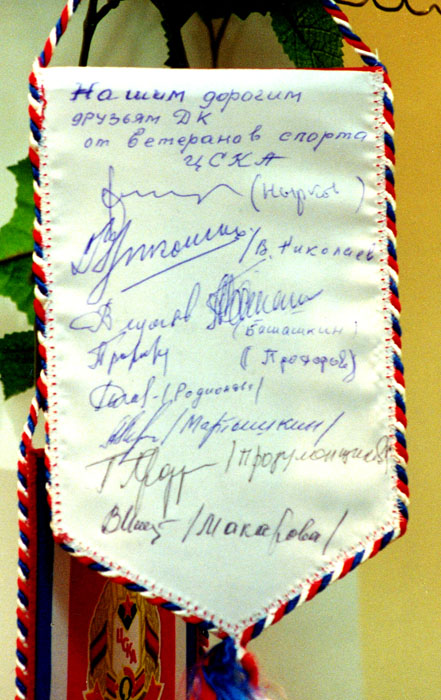 Нашим дорогим
друзьям ДК
от ветеранов спорта
ЦСКА
(Нырков)
/В. Николаев
(Башашкин)
(Прохоров)
/Родионов/
/Мартышкин/
/Продулонщиков
/Макарова/
ЦСКА